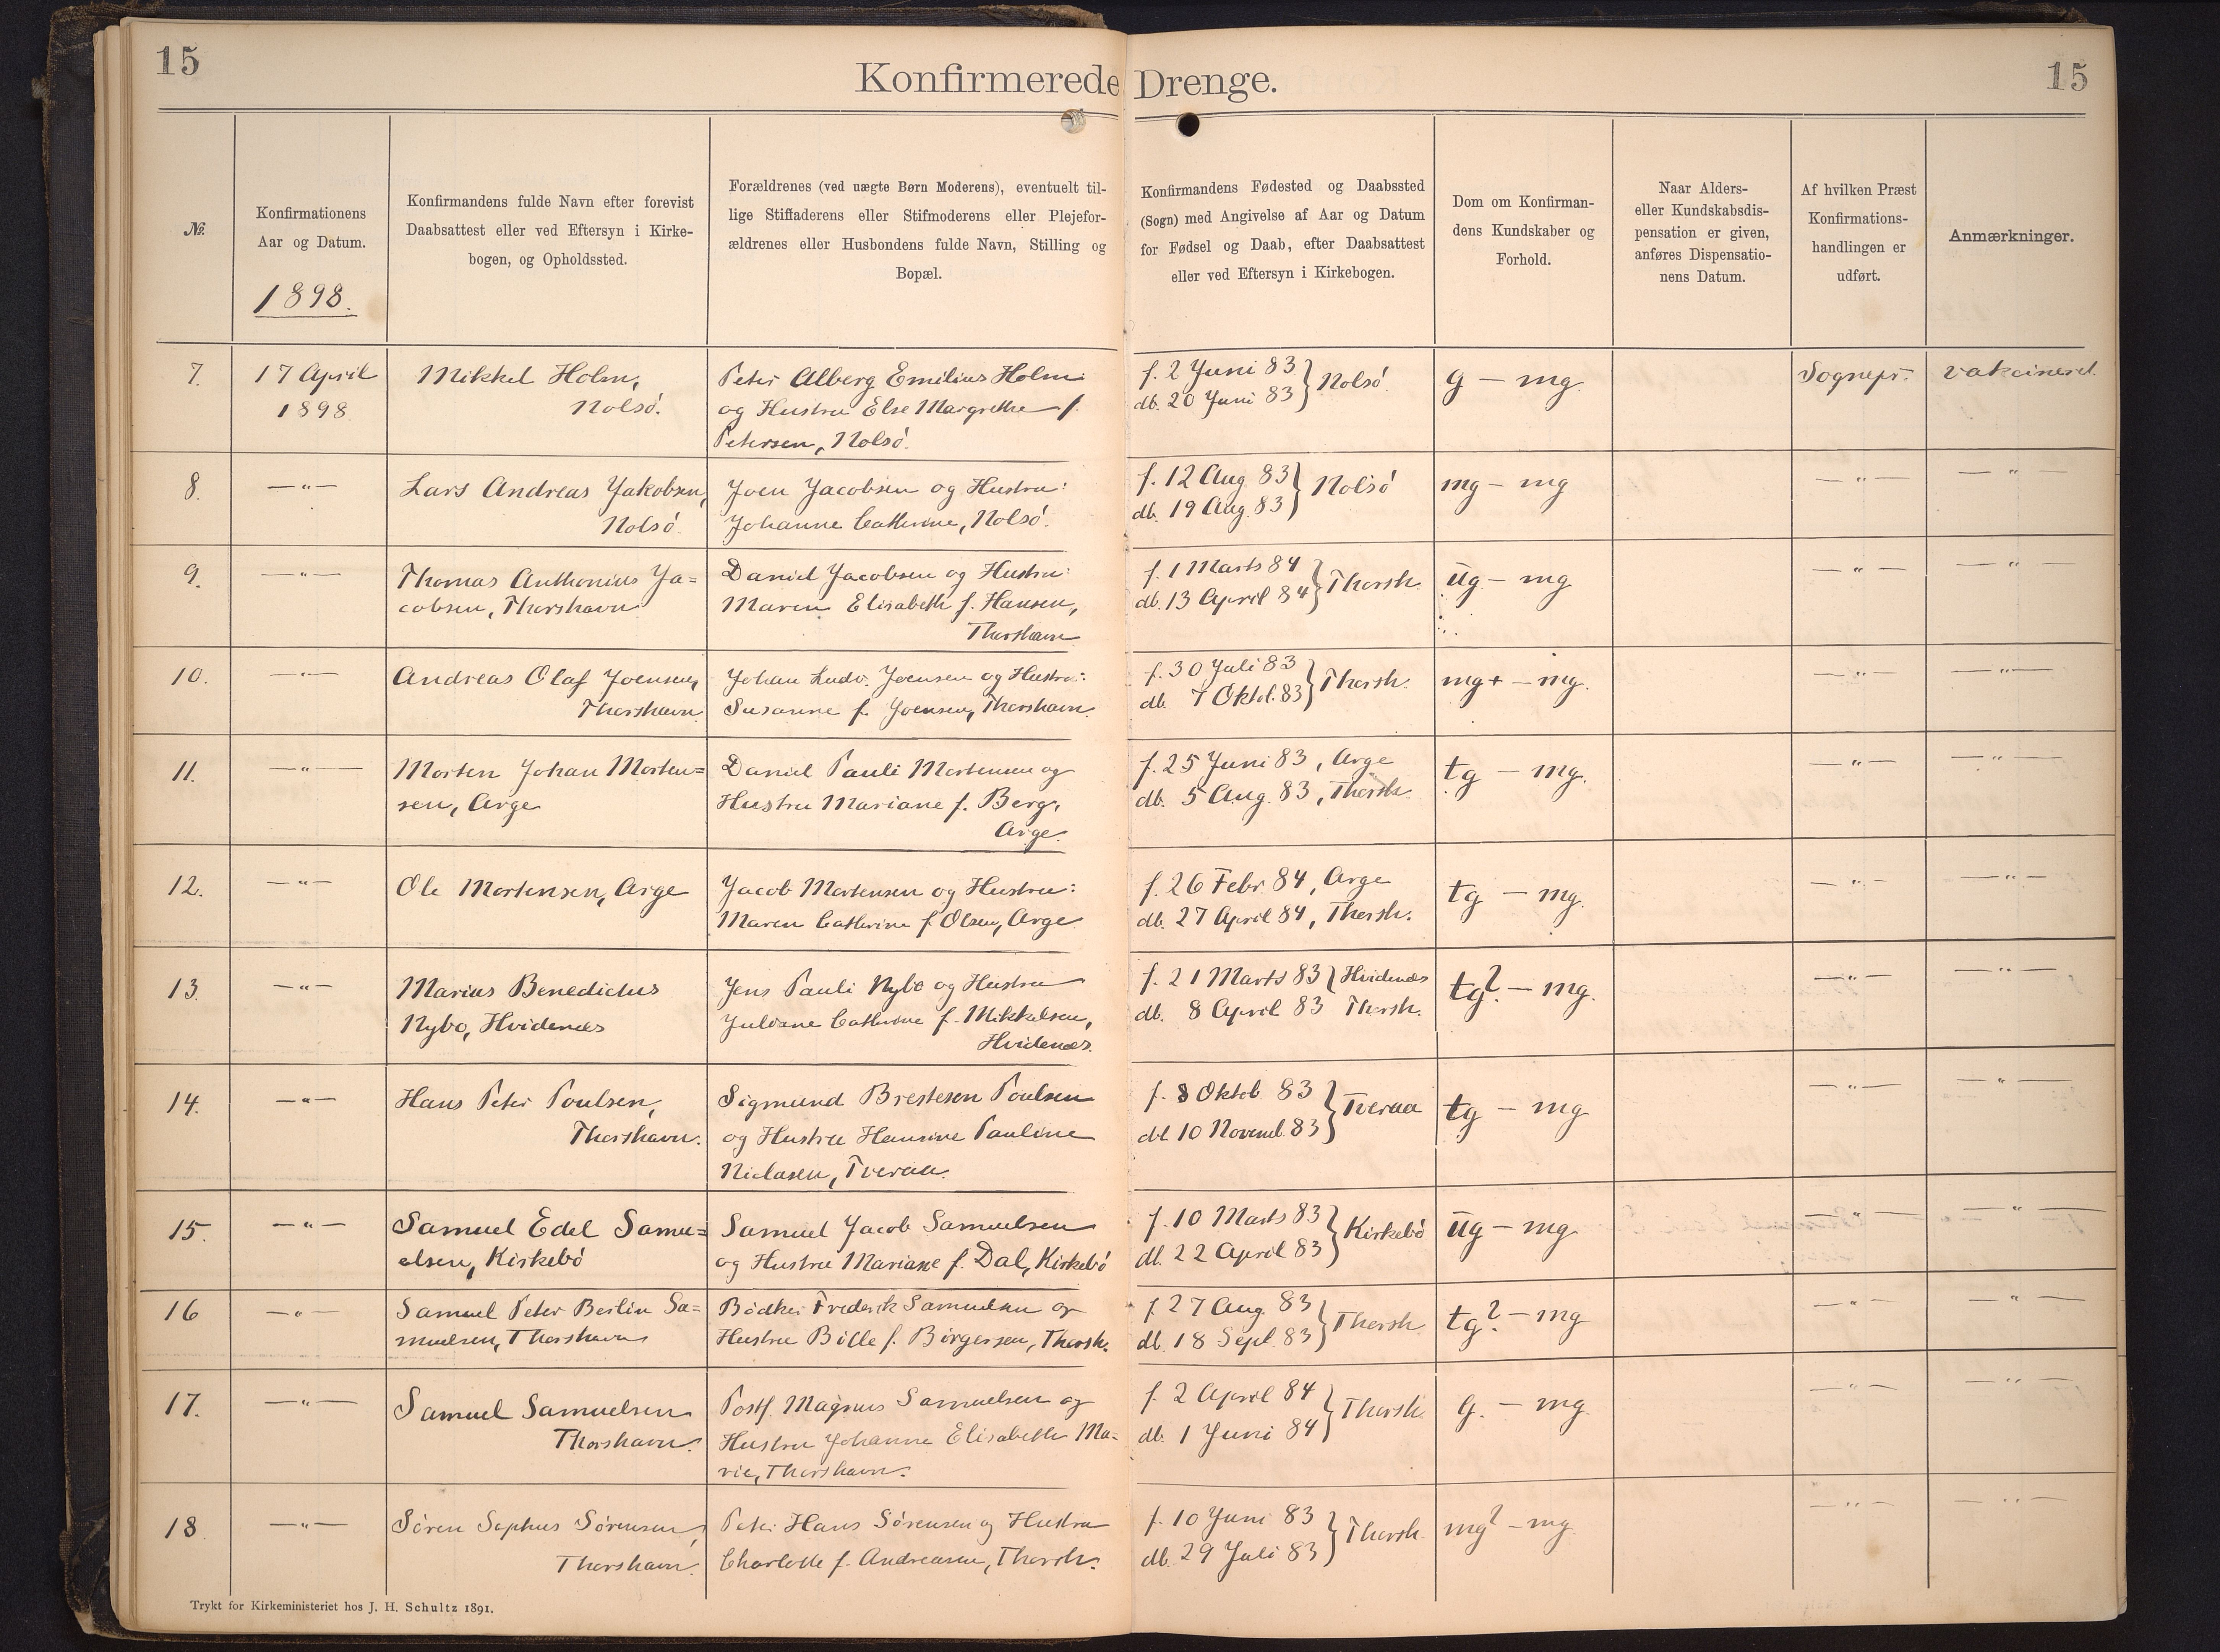 15
Konfirmerede Drenge.
15
№.
Konfirmationens
Aar og Datum.
1898.
Konfirmandens fulde Navn efter forevist
Daabsattest eller ved Eftersyn i Kirke-
bogen, og Opholdssted.
Forældrenes (ved uægte Børn Moderens), eventuelt til-
lige Stiffaderens eller Stifmoderens eller Plejefor-
ældrenes eller Husbondens fulde Navn, Stilling og
Bopæl.
Konfirmandens Fødested og Daabssted
(Sogn) med Angivelse af Aar og Datum
for Fødsel og Daab, efter Daabsattest
eller ved Eftersyn i Kirkebogen.
Dom om Konfirman-
dens Kundskaber og
Forhold.
Naar Alders-
eller Kundskabsdis-
pensation er given,
anføres Dispensatio-
nens Datum.
Af hvilken Præst
Konfirmations-
handlingen er
udført.
Anmærkninger.
7.
17 April
1898
Mikkel Holm,
Nolsö.
Peter Alberg Emilius Holm
og Hustru Else Margrethe f.
Petersen, Nolsö.
f. 2 Juni 83
db. 20 Juni 83 } Nolsö.
g — mg.
Sognepr.
vakcineret.
8.
— " —
Lars Andreas Jakobsen,
Nolsö
Joen Jacobsen og Hustru:
Johanne Cathrine, Nolsö.
f. 12 Aug. 83
db. 19 Aug. 83 } Nolsö
mg — mg
— " —
— " —
9.
— " —
Thomas Anthonius Ja=
cobsen, Thorshavn
Daniel Jacobsen og Hustru:
Maren Elisabeth f. Hansen,
Thorshavn
f. 1 Marts 84
db. 13 April 84 } Thorsh.
ūg — mg
— " —
— " —
10.
— " —
Andreas Olaf Joensen,
Thorshavn
Johan Ludv. Joensen og Hustru:
Susanne f. Joensen, Thorshavn.
f. 30 Juli 83
db. 7 Oktob. 83 } Thorsh.
mg+ — mg.
— " —
— " —
11.
— " —
Morten Johan Morten=
sen, Arge
Daniel Pauli Mortensen og
Hustru Mariane f. Berg,
Arge.
f. 25 Juni 83, Arge
db. 5 Aug. 83, Thorsh.
tg — mg.
— " —
— " —
12.
— " —
Ole Mortensen, Arge
Jacob Mortensen og Hustru:
Maren Cathrine f. Olsen, Arge
f. 26 Febr. 84, Arge
db. 27 April 84, Thorsh.
tg — mg.
— " —
— " —
13.
— " —
Marius Benedictus
Nybo, Hvidenæs
Jens Pauli Nybo og Hustru
Juliane Cathrine f. Mikkelsen,
Hvidenæs.
f. 21 Marts 83 } Hvidenæs
db. 8 April 83 Thorsh.
tg? — mg.
— " —
— " —
14.
— " —
Hans Peter Poulsen,
Thorshavn.
Sigmund Brestesen Poulsen
og Hustru Hansine Pauline
Niclasen, Tveraa.
f. 8 Oktob. 83
db. 10 Novemb. 83 } Tveraa
tg — mg
— " —
— " —
15.
— " —
Samuel Edel Samu=
elsen, Kirkebö
Samuel Jacob Samuelsen
og Hustru Mariane f. Dal, Kirkebö
f. 10 Marts 83
db. 22 April 83 } Kirkebö
ūg — mg
— " —
— " —
16
— " —
Samuel Peter Berlin Sa=
muelsen, Thorshavn
Bödker Frederik Samuelsen og
Hustru Bille f. Birgersen, Thorsh.
f. 27 Aug. 83
db. 18 Sept. 83 } Thorsh
tg? — mg
— " —
— " —
17.
— " —
Samuel Samuelsen
Thorshavn.
Postf. Magnus Samuelsen og
Hustru Johanne Elisabeth Ma=
rie, Thorshavn.
f. 2 April 84
db. 1 Juni 84 } Thorsh.
g. — mg.
— " —
— " —
18
— " —
Sören Sophus Sörensen,
Thorshavn.
Peter Hans Sörensen og Hustru
Charlotte f. Andreasen, Thorsh.
f. 10 Juni 83
db. 29 Juli 83 } Thorsh.
mg? — mg
— " —
— " —
Trykt for Kirkeministeriet hos J. H. Schultz 1891.